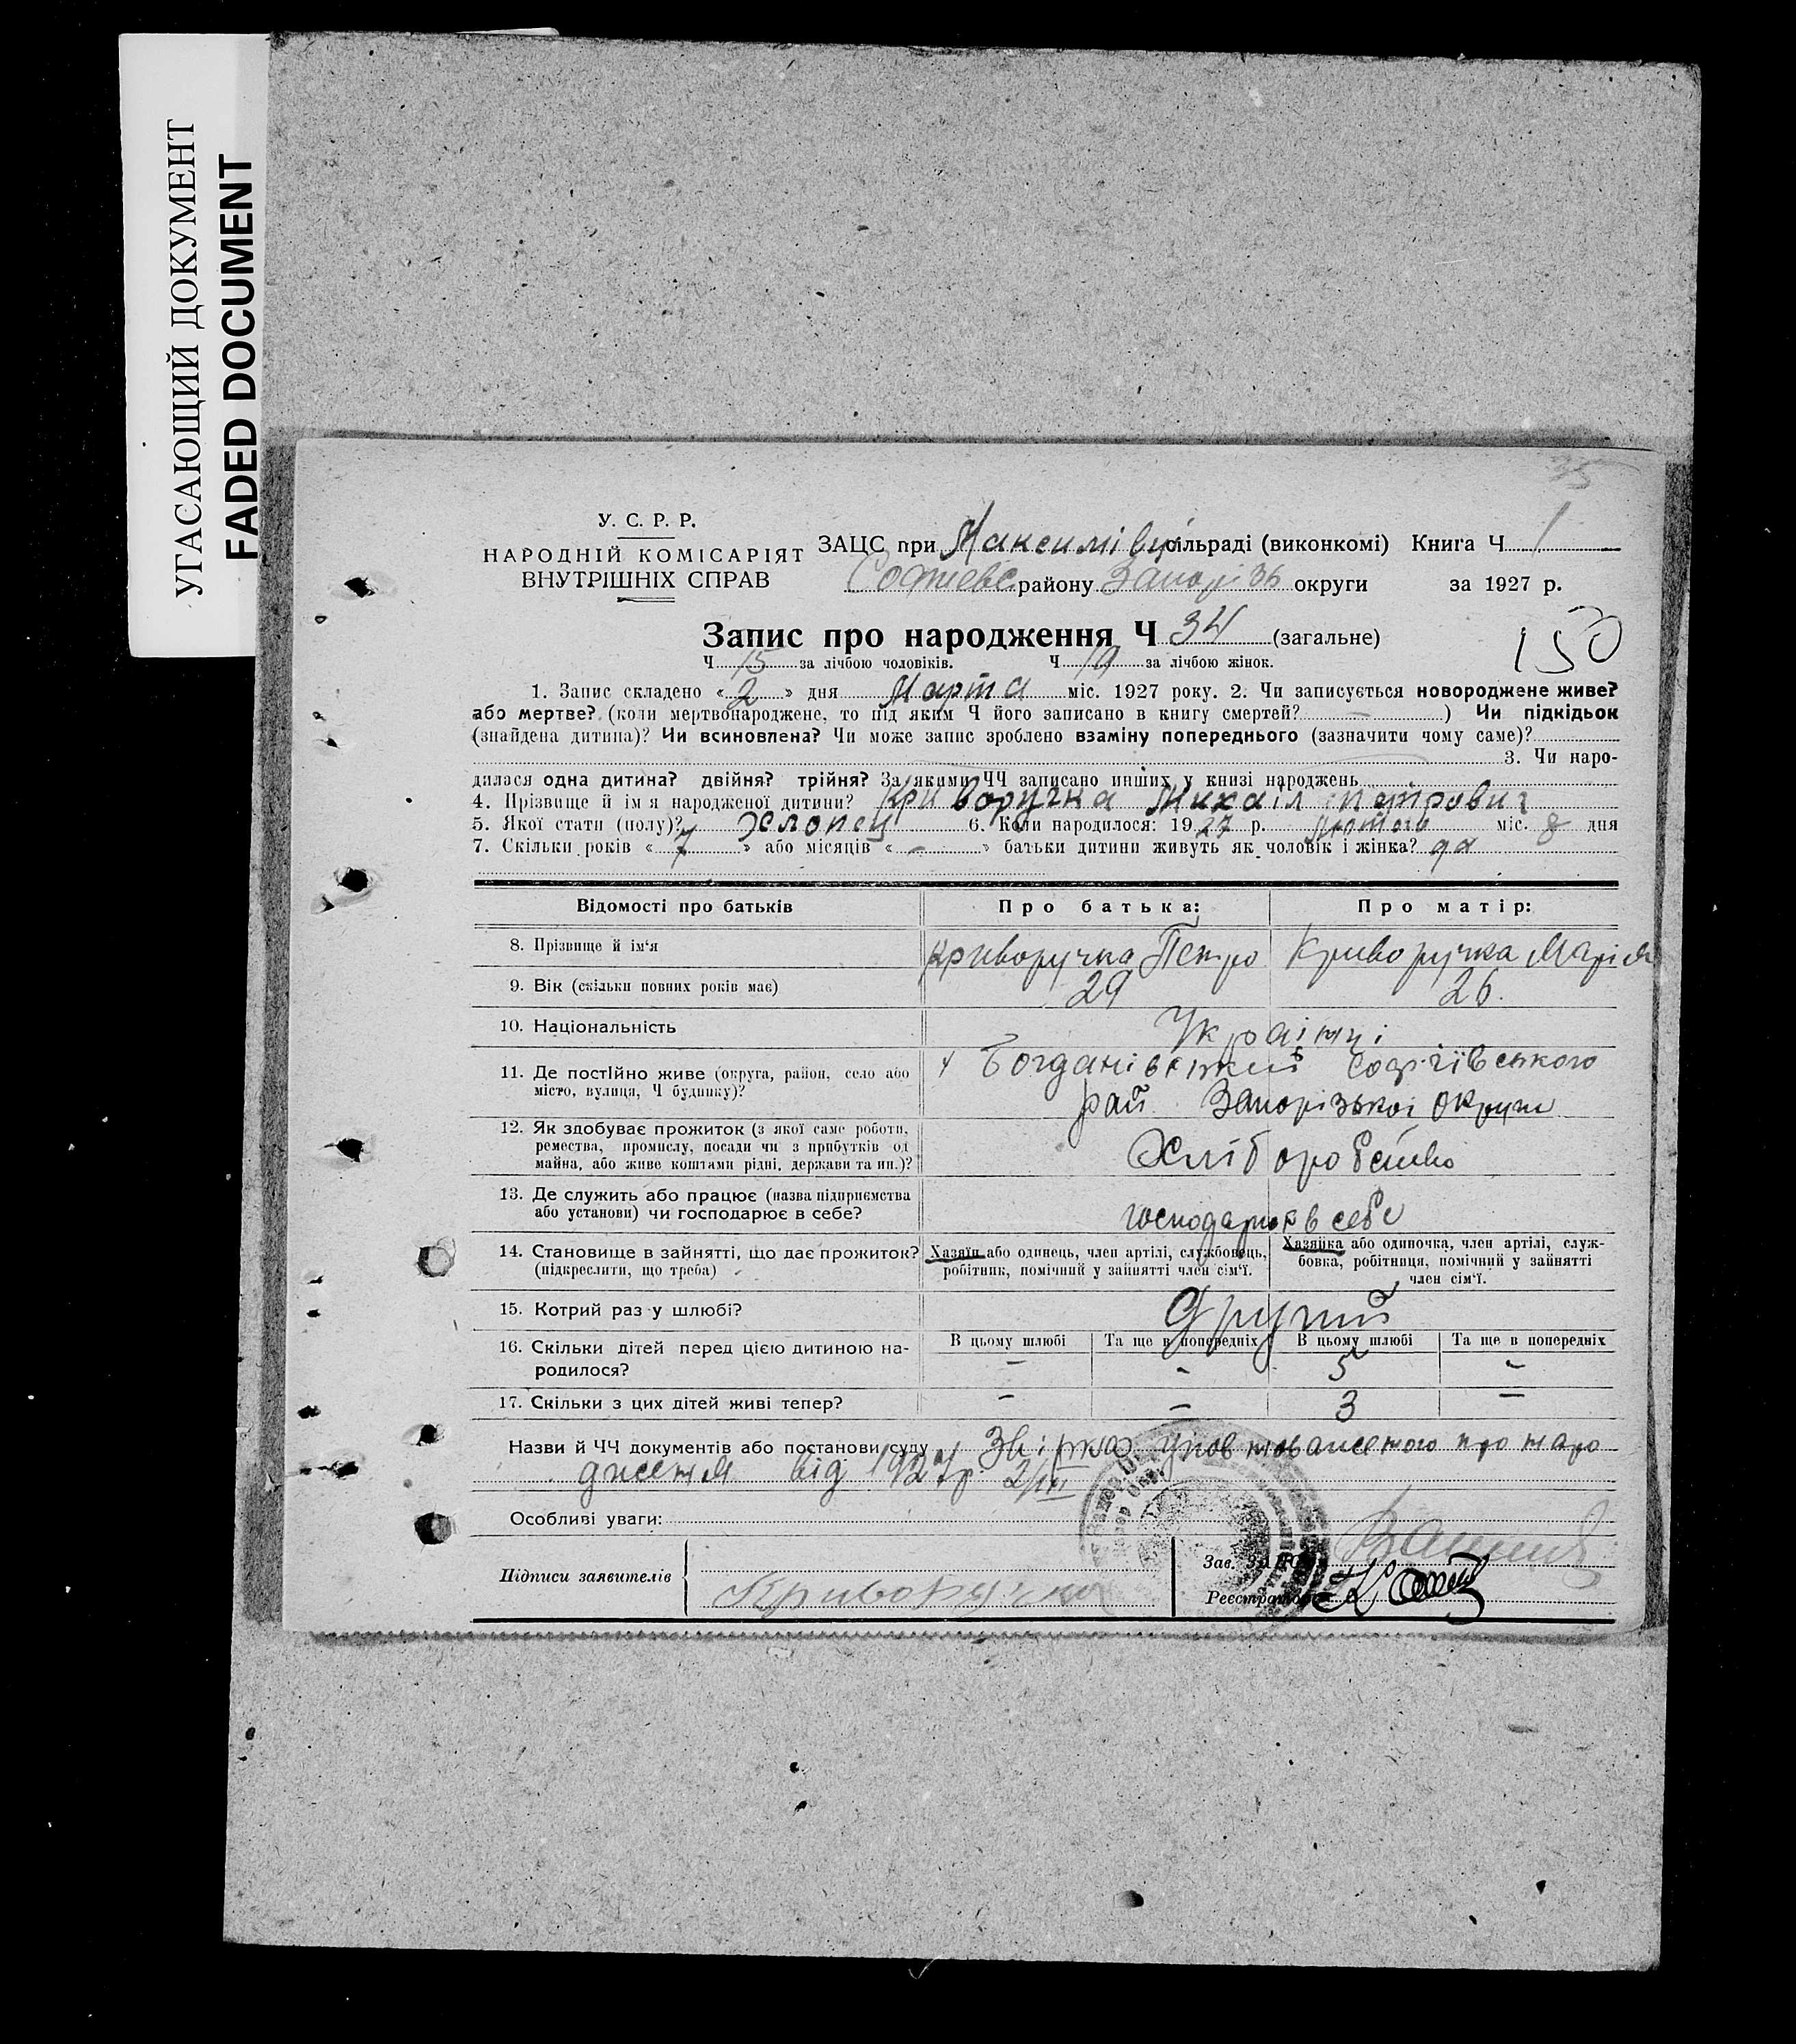 УГАСАЮЩИЙ ДОКУМЕНТ
FADED DOCUMENT
35
У. С. Р. Р.
НАРОДНІЙ КОМІСАРІЯТ
ВНУТРІШНІХ СПРАВ
ЗАЦС при сільраді (виконкомі) Книга Ч 1
району Запорізь округи за 1927 р.
Запис про народження Ч 34 (загальне)
150
Ч 15 за лічбою чоловіків. Ч 19 за лічбою жінок.
1. Запис складено « 2 » дня Марта міс. 1927 року. 2. Чи записується новороджене живе?
або мертве? (коли мертвонароджене, то під яким Ч його записано в книгу смертей? — ) Чи підкідьок
(знайдена дитина)? Чи всиновлена? Чи може запис зроблено взаміну попереднього (зазначити чому саме)?
3. Чи наро-
дилася одна дитина? двійня? трійня? За якими ЧЧ записано инших у книзі народжень
4. Прізвище й ім'я народженої дитини? Криворучка Михаіл Петрович
5. Якої стати (полу)? Хлопец 6. Коли народилося: 1927 р. Лютого міс. 8 дня
7. Скільки років « 7 » або місяців « — » батьки дитини живуть як чоловік і жінка? да
Відомості про батьків Про батька: Про матір:
8. Прізвище й ім'я Криворучка Петро Криворучка Марія
9. Вік (скільки повних років має) 29 26.
10. Національність Українці
11. Де постійно живе (округа, район, село або
місто, вулиця, Ч будинку)?
Софіївського
рай Запорізькоі Округи
12. Як здобуває прожиток (з якої саме роботи,
ремества, промислу, посади чи з прибутків од
майна, або живе коштами рідні, держави та ин.)?
Хліборобство
13. Де служить або працює (назва підприємства
або установи) чи господарює в себе?
господарює в себе
14. Становище в зайнятті, що дає прожиток?
(підкреслити, що треба)
Хазяїн або одинець, член артілі, службовець,
робітник, помічний у зайнятті член сім'ї.
Хазяйка або одиночка, член артілі, служ-
бовка, робітниця, помічний у зайнятті
член сім'ї.
15. Котрий раз у шлюбі? Другий
16. Скільки дітей перед цією дитиною на-
родилося?
В цьому шлюбі Та ще в попередніх В цьому шлюбі Та ще в попередніх
— - 5 -
17. Скільки з цих дітей живі тепер? — — 3 —
Назви й ЧЧ документів або постанови суду про наро
дження від 1927 р. 2/III
Особливі уваги:
Підписи заявителів Криворучка
Зав. ЗАЦС
Реєстратор